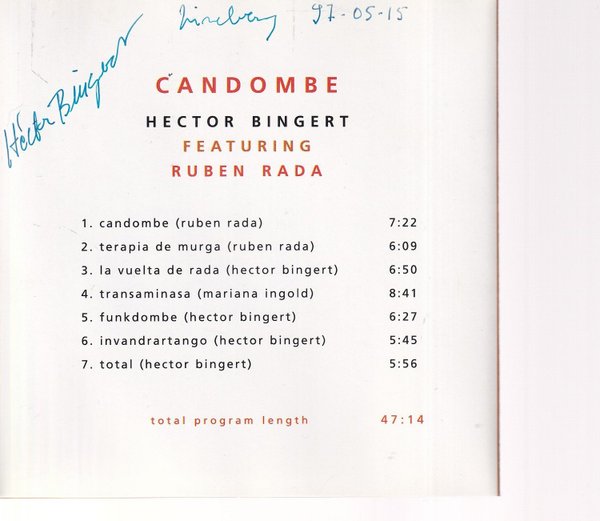 97-05-15
Héctor Bingert
CANDOMBE
HECTOR BINGERT
FEATURING
RUBEN RADA
1. candombe (ruben rada) 7:22
2. terapia de murga (ruben rada) 6:09
3. la vuelta de rada (hector bingert) 6:50
4. transaminasa (mariana ingold) 8:41
5. funkdombe (hector bingert) 6:27
6. invandrartango (hector bingert) 5:45
7. total (hector bingert) 5:56
total program length 47:14